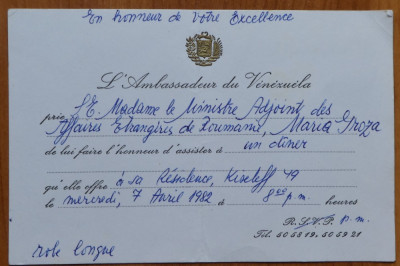 En honneur de Votre Excellence
L'Ambassadeur du Vénézuéla
prie S.E. Madame le Ministre Adjoint des
Affaires Etrangères de Roumanie, Maria Groza
de lui faire l'honneur d'assister à un dîner
qu'elle offre à sa Résidence, Kiseleff 49
le mercredi, 7 Avril 1982 à 8 p.m. heures
R.S.V.P. p.m.
Tél. 50 58 19. 50 59 21
robe longue